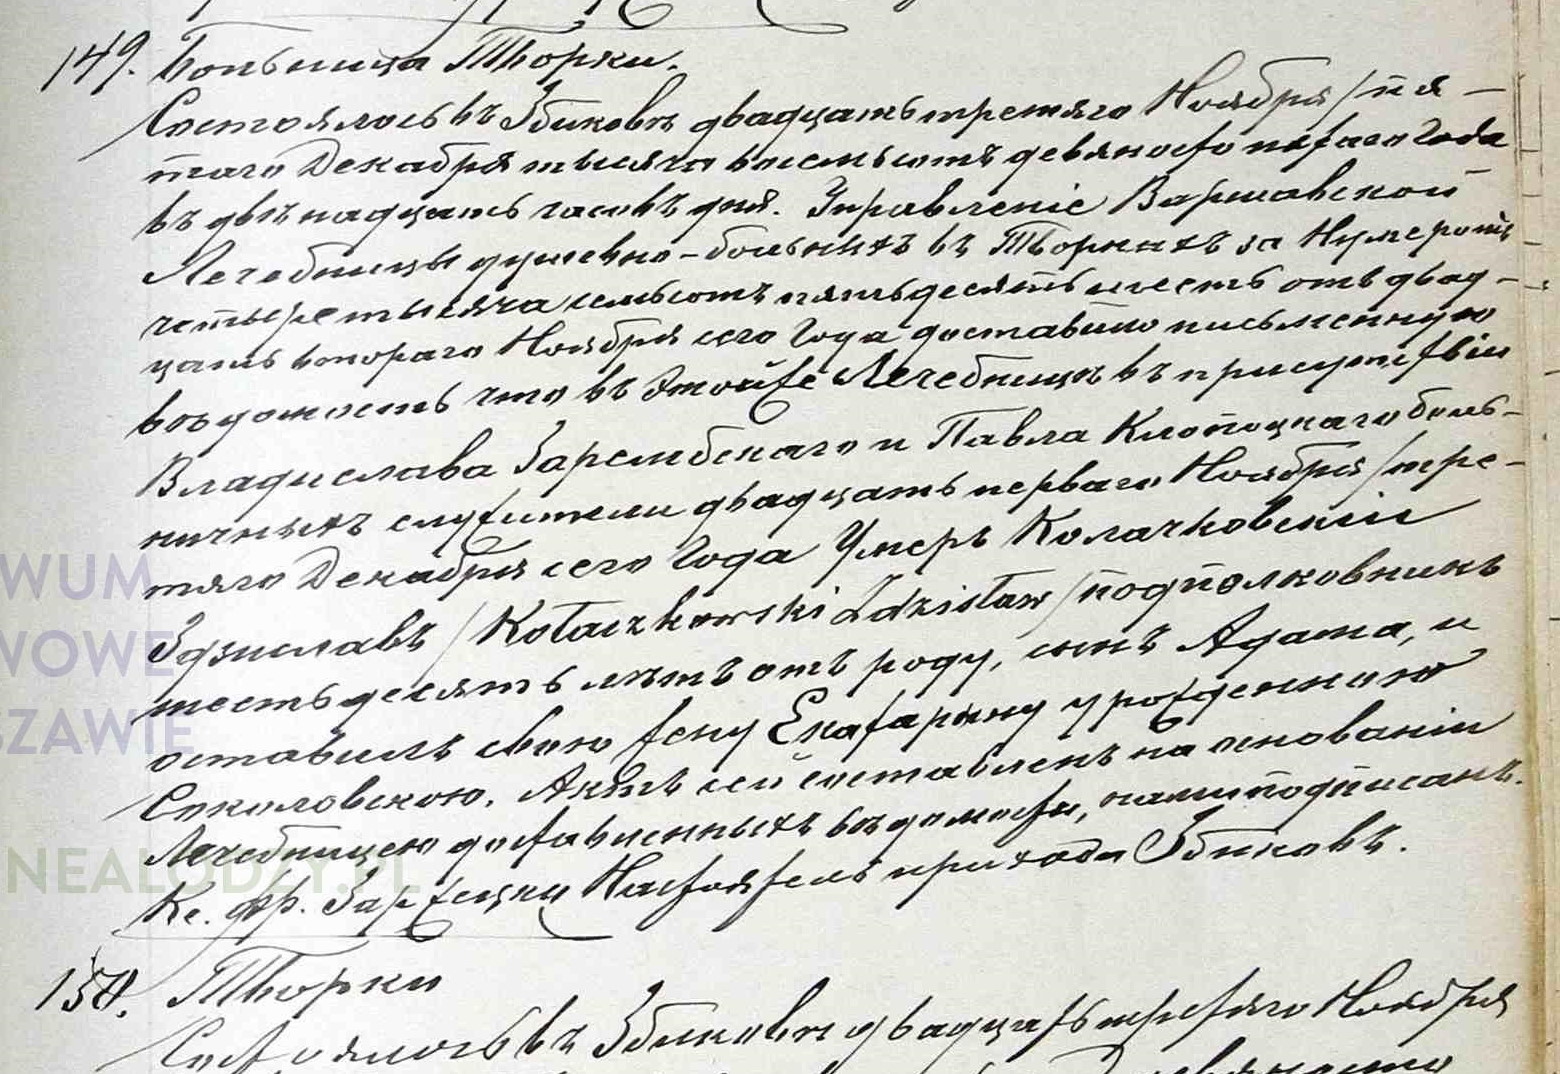 149. Больница Творки.
Состоялось въ Збиковѣ двадцать третяго Ноября / пя-
таго Декабря тысяча восемьсотъ девяносто перваго Года
въ двѣнадцать часовъ дня. Управленіе Варшавской
Лечебницы душевно-больныхъ въ Творкахъ за Нумеромъ
четыре тысяча семьсотъ пятьдесятъ шесть отъ двад-
цать втораго Ноября сего Года доставило письменную
вѣдомость что въ этойже Лечебницѣ въ присутствіи
Владислава Зарембскаго и Павла Клопоцкаго боль-
ничныхъ служители двадцать перваго Ноября / тре-
тяго Декабря сего Года Умеръ Колачковскій
Здзиславъ / Kołaczkowski Zdzisław / подполковникъ
шестьдесятъ лѣтъ отъ роду, сынъ Адама, и
оставилъ свою жену Екатарину урожденную
Соколовскою. Актъ сей составленъ на основаніи
Лечебницею доставленныхъ вѣдомости, нами подписанъ.
Кс. Фр. Заржецки Настоятель прихода Збиковъ.
150. Творки
Состоялось въ Збиковѣ двадцать третяго Ноября
WUM
WOWE
SZAWIE
NEALODZY.PL